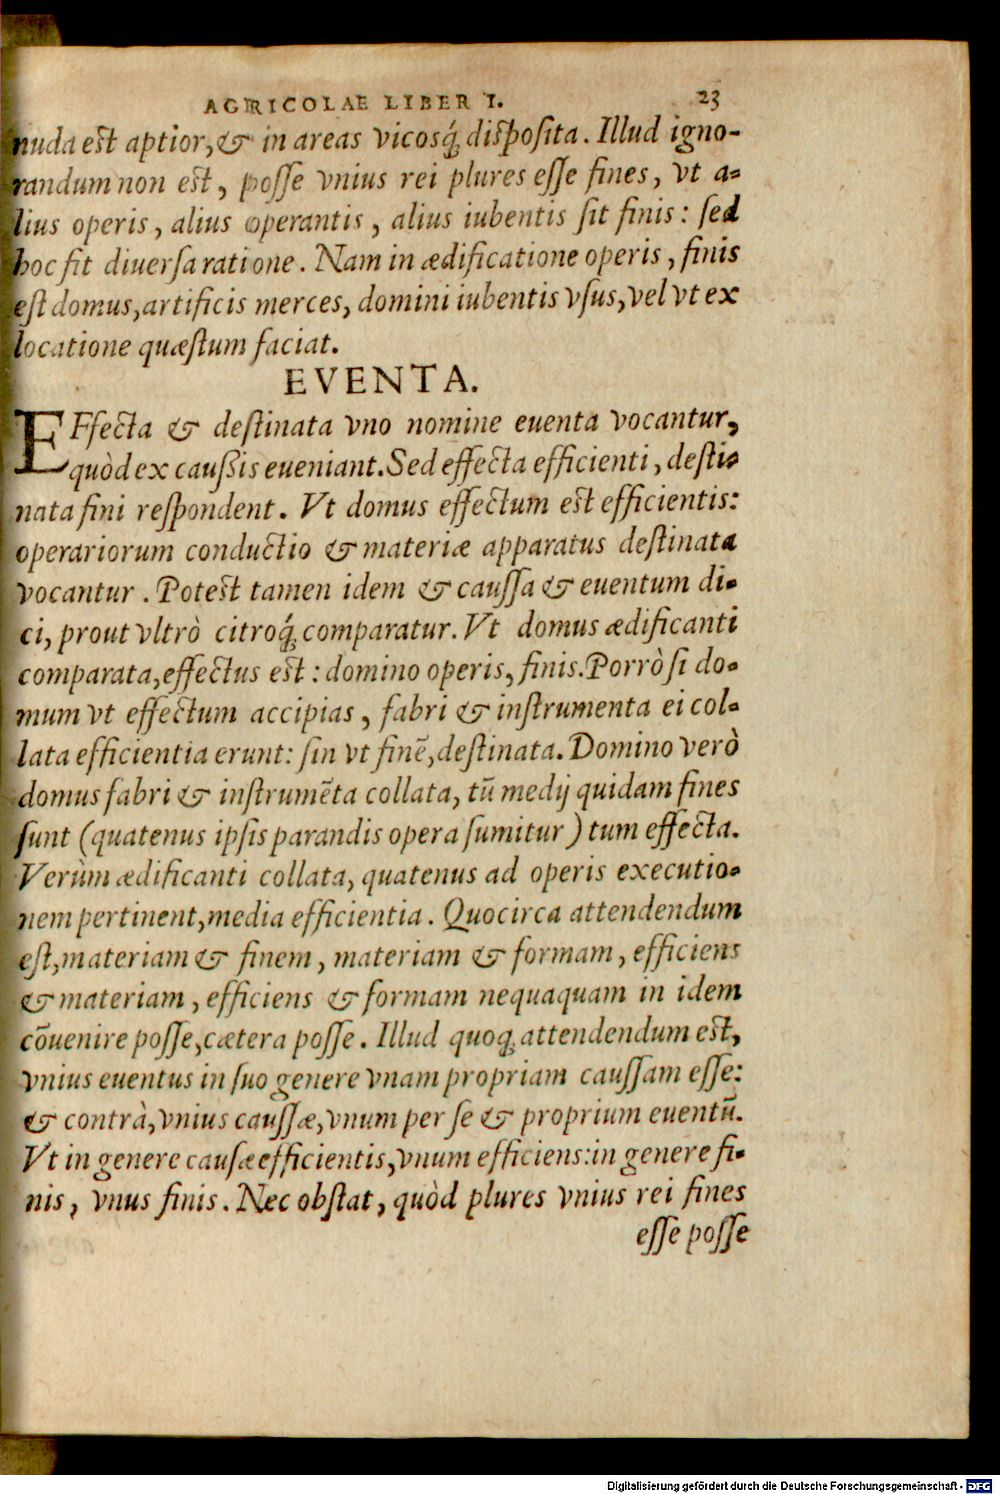 AGRICOLAE LIBER I. 23
nuda est aptior, & in areas vicosq́; disposita. Illud igno-
randum non est, posse vnius rei plures esse fines, vt a-
lius operis, alius operantis, alius iubentis sit finis: sed
hoc fit diuersa ratione. Nam in ædificatione operis, finis
est domus, artificis merces, domini iubentis vsus, vel vt ex
locatione quæstum faciat.
EVENTA.
EFfecta & destinata vno nomine euenta vocantur,
quòd ex caussis eueniant. Sed effecta efficienti, desti-
nata fini respondent. Vt domus effectum est efficientis:
operariorum conductio & materiæ apparatus destinata
vocantur. Potest tamen idem & caussa & euentum di-
ci, prout vltrò citroq́; comparatur. Vt domus ædificanti
comparata, effectus est: domino operis, finis. Porrò si do-
mum vt effectum accipias, fabri & instrumenta ei col-
lata efficientia erunt: sin vt finē, destinata. Domino verò
domus fabri & instrumēta collata, tū medij quidam fines
sunt (quatenus ipsis parandis opera sumitur) tum effecta.
Verùm ædificanti collata, quatenus ad operis executio-
nem pertinent, media efficientia. Quocirca attendendum
est, materiam & finem, materiam & formam, efficiens
& materiam, efficiens & formam nequaquam in idem
cōuenire posse, cætera posse. Illud quoq; attendendum est,
vnius euentus in suo genere vnam propriam caussam esse:
& contrà, vnius caussæ, vnum per se & proprium euentū.
Vt in genere causæ efficientis, vnum efficiens: in genere fi-
nis, vnus finis. Nec obstat, quòd plures vnius rei fines
esse posse
Digitalisierung gefördert durch die Deutsche Forschungsgemeinschaft - DFG